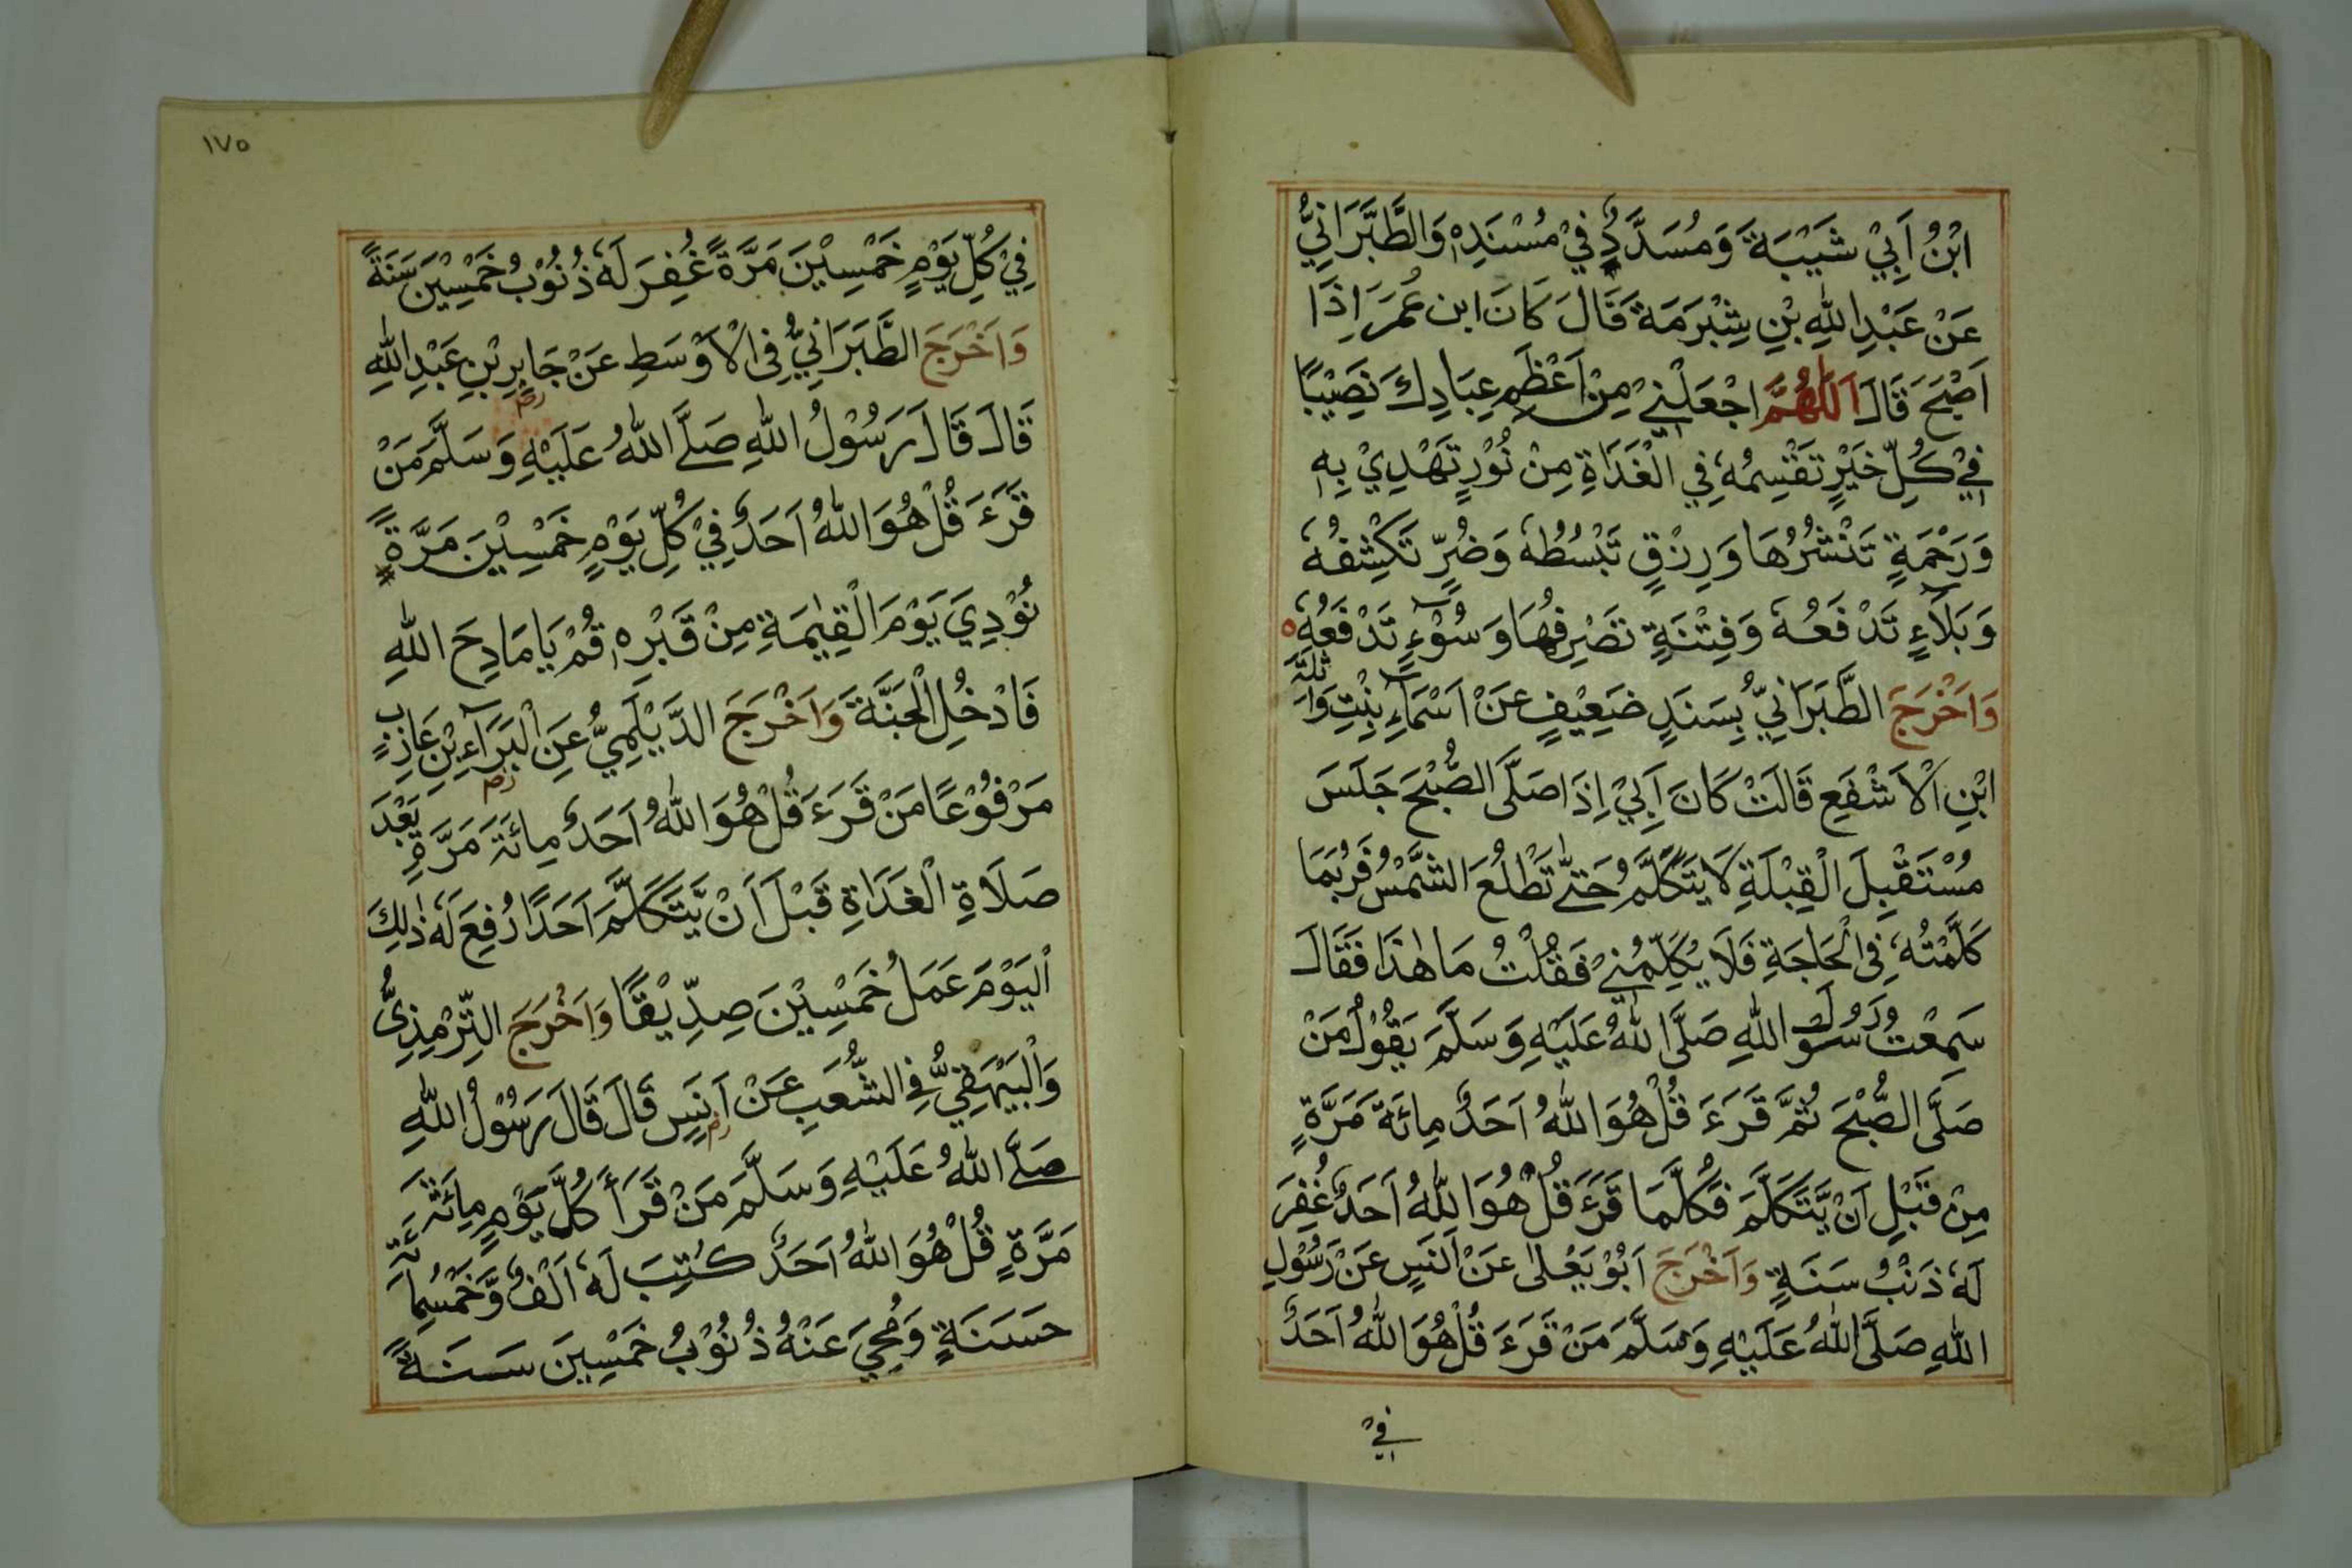 ابْنُ اَبِيْ شَيْبَةَ وَمُسَدَّدٌ فِيْ مُسْنَدِهٖ وَالطَّبَرَانِيُّ
عَنْ عَبْدِ اللّٰهِ بْنِ شِبْرَمَةَ قَالَ كَانَ ابن عُمَرَ اِذَا
اَصْبَحَ قَالَ اَللّٰهُمَّ اجْعَلْنِيْ مِنْ اَعْظَمِ عِبَادِكَ نَصِيْبًا
فِيْ كُلِّ خَيْرٍ تَقْسِمُهٗ فِي الْغَدَاةِ مِنْ نُوْرٍ تَهْدِيْ بِهٖ
وَرَحْمَةٍ تَنْشُرُهَا وَرِزْقٍ تَبْسُطُهٗ وَضُرٍّ تَكْشِفُهٗ
وَبَلَآءٍ تَدْفَعُهٗ وَفِتْنَةٍ تَصْرِفُهَا وَسُوْءٍ تَدْفَعُهٗ
وَاَخْرَجَ الطَّبَرَانِيُّ بِسَنَدٍ ضَعِيْفٍ عَنْ اَسْمَآءِ بِنْتِ وَاثِلَةَ
ابْنِ الْاَشْفَعِ قَالَتْ كَانَ اَبِيْ اِذَا صَلَّى الصُّبْحَ جَلَسَ
مُسْتَقْبِلَ الْقِبْلَةِ لَا يَتَكَلَّمُ حَتّٰى تَطْلُعَ الشَّمْسُ فَرُبَمَا
كَلَّمْتُهٗ فِى الْحَاجَةِ فَلَا يُكَلِّمُنِيْ فَقُلْتُ مَا هٰذَا فَقَالَ
سَمِعْتُ رَسُوْلَ اللّٰهِ صَلَّى اللّٰهُ عَلَيْهِ وَسَلَّمَ يَقُوْلُ مَنْ
صَلَّى الصُّبْحَ ثُمَّ قَرَءَ قُلْ هُوَ اللّٰهُ اَحَدٌ مِائَةَ مَرَّةٍ
مِنْ قَبْلِ اَنْ يَّتَكَلَّمَ فَكُلَّمَا قَرَءَ قُلْ هُوَ اللّٰهُ اَحَدٌ غُفِرَ
لَهٗ ذَنْبُ سَنَةٍ وَاَخْرَجَ اَبُوْ يَعْلٰى عَنْ اَنَسٍ عَنْ رَسُوْلِ
اللّٰهِ صَلَّى اللّٰهُ عَلَيْهِ وَسَلَّمَ مَنْ قَرَءَ قُلْ هُوَ اللّٰهُ اَحَدٌ
فِيْ
١٧٥
فِيْ كُلِّ يَوْمٍ خَمْسِيْنَ مَرَّةً غُفِرَ لَهٗ ذُنُوْبُ خَمْسِيْنَ سَنَةً
وَاَخْرَجَ الطَّبَرَانِيُّ فِى الْاَوْسَطِ عَنْ جَابِرِ بْنِ عَبْدِ اللّٰهِ
قَالَ قَالَ رَسُوْلُ اللّٰهِ صَلَّى اللّٰهُ عَلَيْهِ وَسَلَّمَ مَنْ
قَرَءَ قُلْ هُوَ اللّٰهُ اَحَدٌ فِيْ كُلِّ يَوْمٍ خَمْسِيْنَ مَرَّةً
نُوْدِيَ يَوْمَ الْقِيٰمَةِ مِنْ قَبْرِهٖ قُمْ يَا مَادِحَ اللّٰهِ
فَادْخُلِ الْجَنَّةَ وَاَخْرَجَ الدَّيْلَمِيُّ عَنِ الْبَرَآءِ بْنِ عَازِبٍ
مَرْفُوْعًا مَنْ قَرَءَ قُلْ هُوَ اللّٰهُ اَحَدٌ مِائَةَ مَرَّةٍ بَعْدَ
صَلَاةِ الْغَدَاةِ قَبْلَ اَنْ يَّتَكَلَّمَ اَحَدًا رُفِعَ لَهٗ ذٰلِكَ
الْيَوْمَ عَمَلُ خَمْسِيْنَ صِدِّيْقًا وَاَخْرَجَ التِّرْمِذِىُّ
وَالْبَيْهَقِيُّ فِى الشُّعَبِ عَنْ اَنَسٍ قَالَ قَالَ رَسُوْلُ اللّٰهِ
صَلَّى اللّٰهُ عَلَيْهِ وَسَلَّمَ مَنْ قَرَأَ كُلَّ يَوْمٍ مِائَةَ
مَرَّةٍ قُلْ هُوَ اللّٰهُ اَحَدٌ كُتِبَ لَهٗ اَلْفٌ وَّخَمْسُمِائَةِ
حَسَنَةٍ وَمُحِيَ عَنْهُ ذُنُوْبُ خَمْسِيْنَ سَنَةً